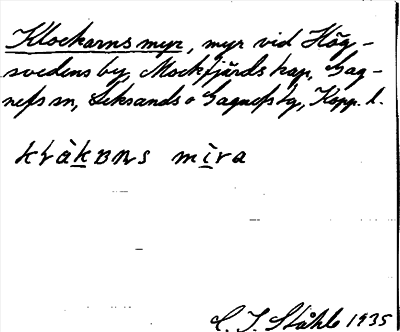 Klockarns myr, myr vid Hög-
svedens by, Mockfjärds kap., Gag-
nefs sn, Leksands o Gagnefs tg, Kopp. l.
C. I. Ståhle 1935